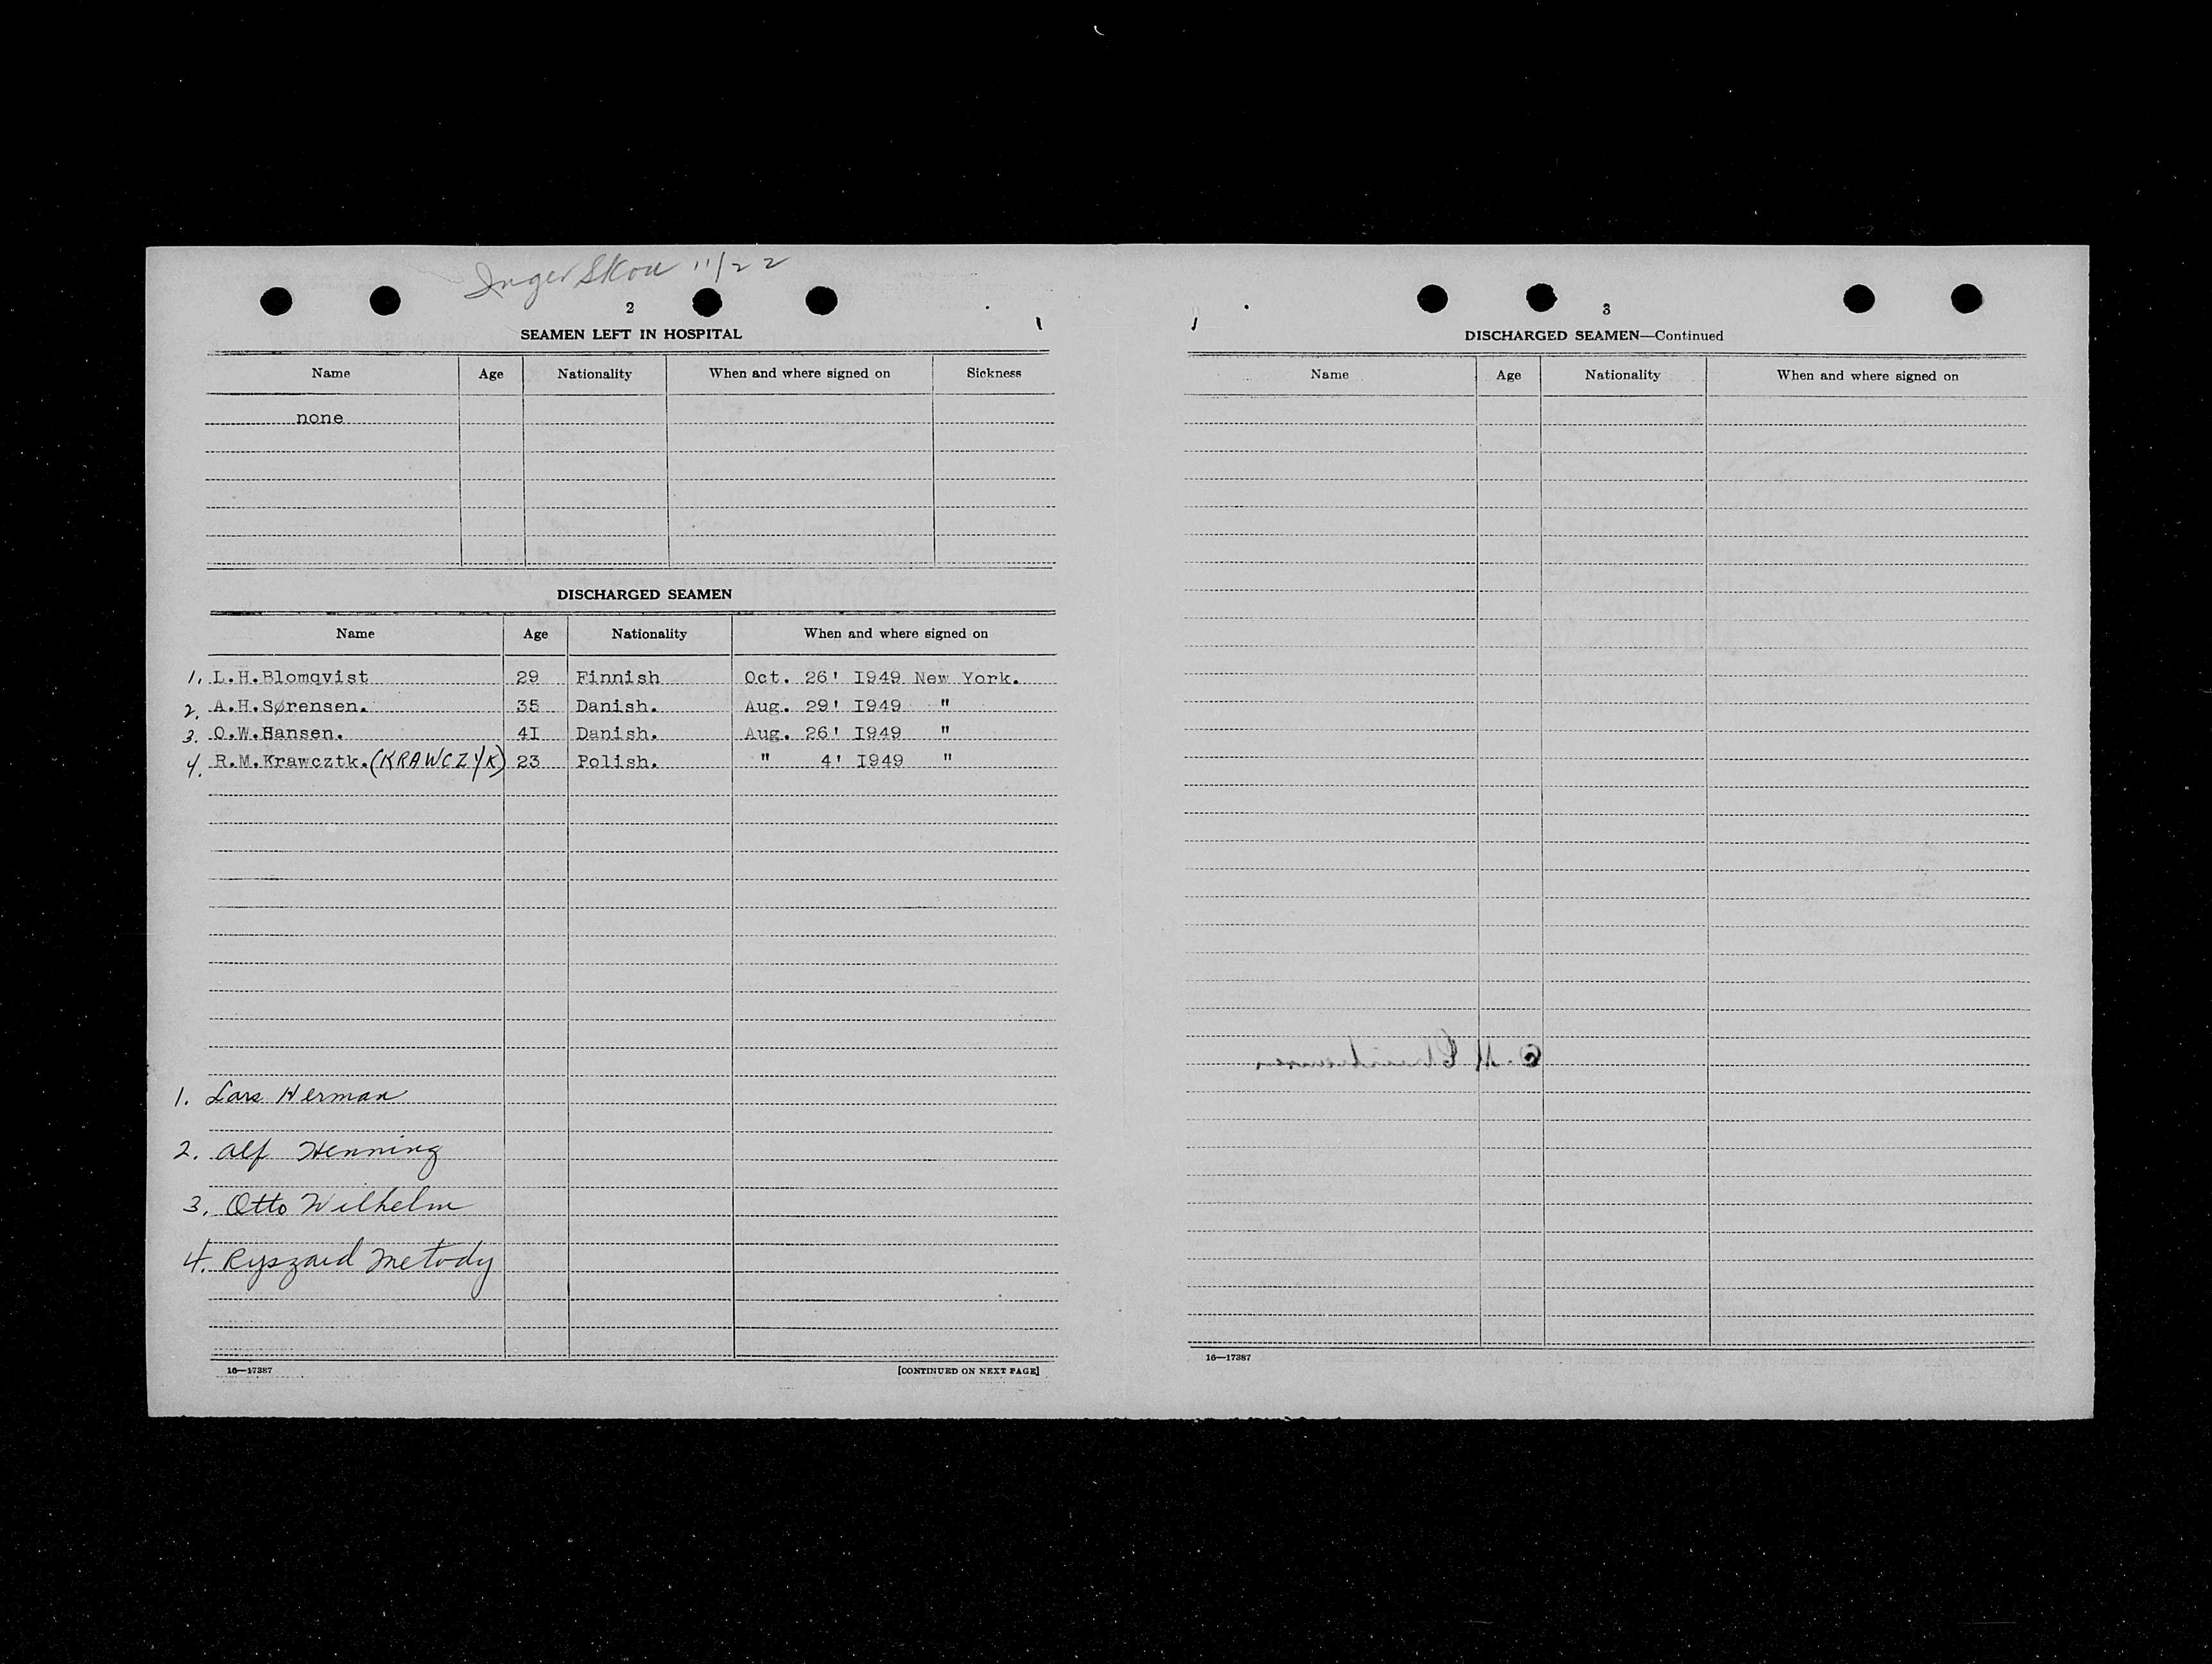 Inger Skou 11/22
2
SEAMEN LEFT IN HOSPITAL
Name Age Nationality When and where signed on Sickness
none
DISCHARGED SEAMEN
Name Age Nationality When and where signed on
1. L.H.Blomqvist 29 Finnish Oct. 26' I949 New York.
2. A.H.Sørensen. 35 Danish. Aug. 29' I949 "
3. O.W.Hansen. 4I Danish. Aug. 26' I949 "
4. R.M.Krawcztk. (KRAWCZYK) 23 Polish. " 4' I949 "
1. Lars Herman
2. Alf Henning
3. Otto Wilhelm
4. Ryszard Metody
16—17387 [CONTINUED ON NEXT PAGE]
3
DISCHARGED SEAMEN—Continued
Name Age Nationality When and where signed on
16—17387